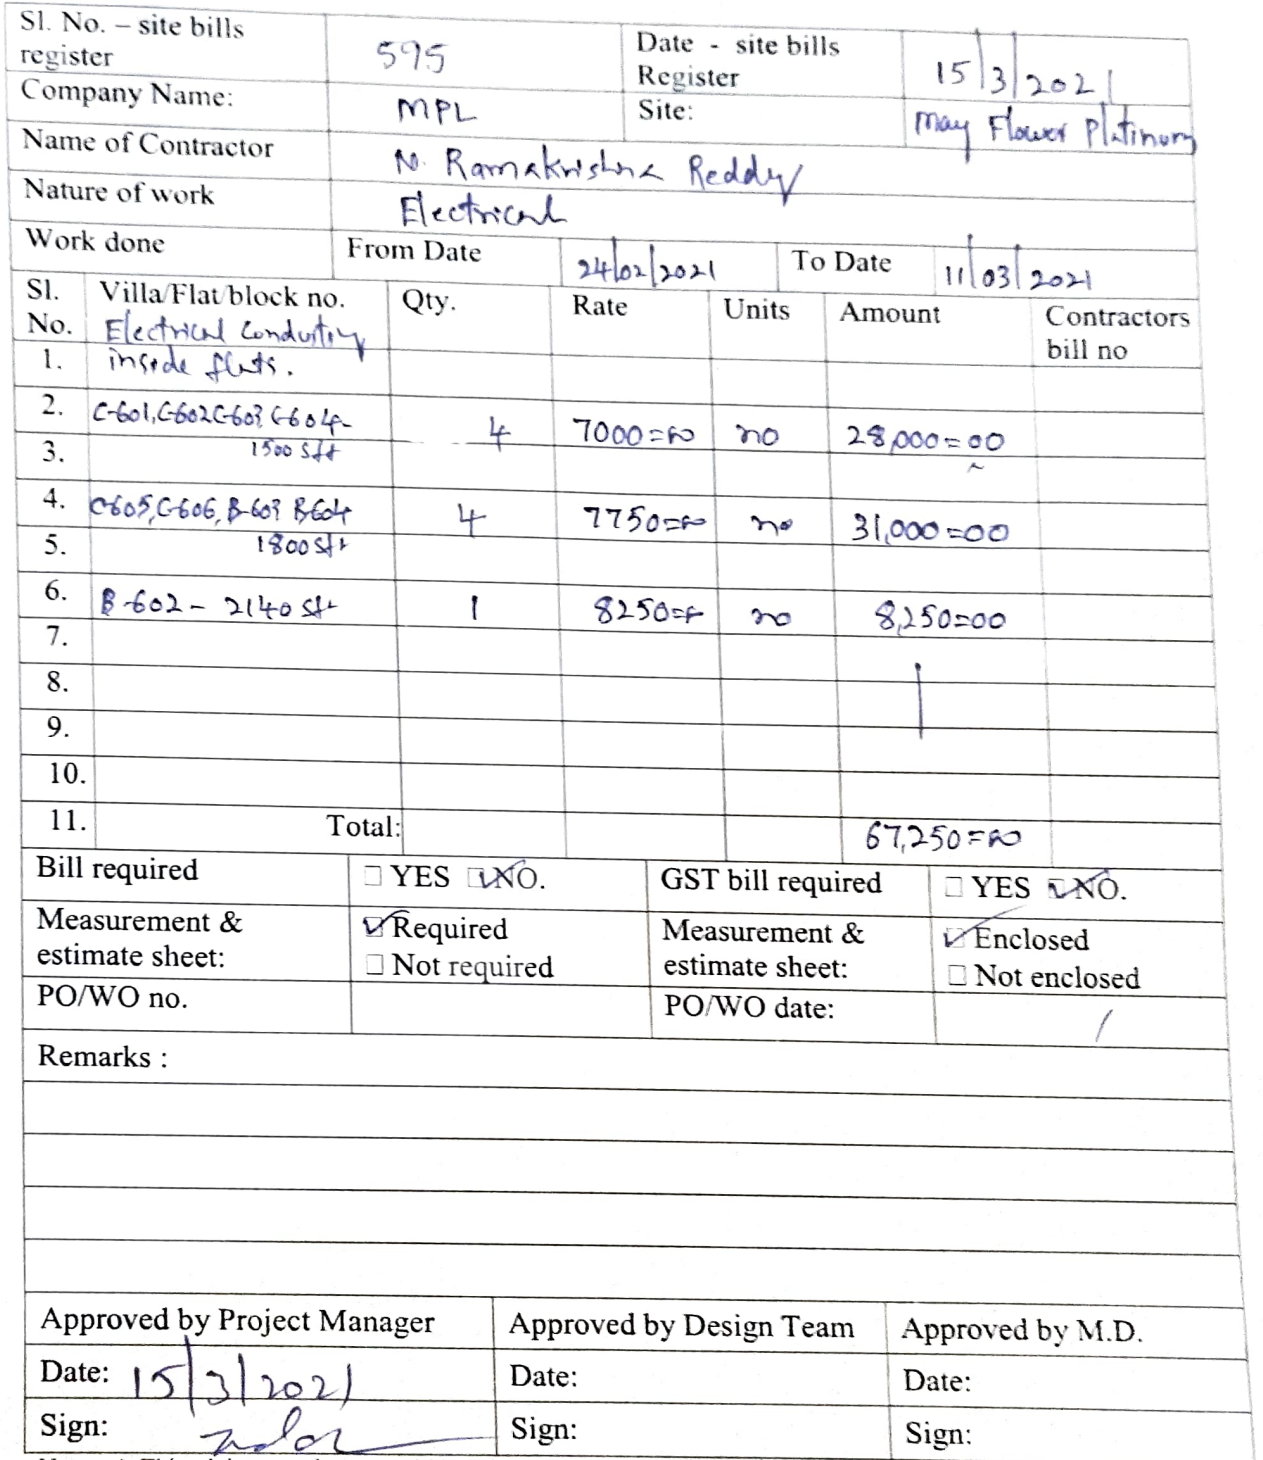 Sl. No. – site bills register 595 Date - site bills Register 15/3/2021
Company Name: MPL Site: May Flower Platinum
Name of Contractor N. Ramakrishna Reddy
Nature of work Electrical
Work done From Date 24/02/2021 To Date 11/03/2021
Sl. No. Villa/Flat/block no. Qty. Rate Units Amount Contractors bill no
Electrical Conduiting
1. inside flats.
2. C-601, C-602 C-603, C-604- 4 7000=00 no 28,000=00
3. 1500 sft
4. C-605, C-606, B-603 B-604 4 7750=00 no 31,000=00
5. 1800 sft
6. B-602 - 2140 sft 1 8250=00 no 8,250=00
7.
8.
9.
10.
11. Total: 67,250=00
Bill required ☐ YES ☑ NO. GST bill required ☐ YES ☑ NO.
Measurement & estimate sheet: ☑ Required Measurement & estimate sheet: ☑ Enclosed
☐ Not required ☐ Not enclosed
PO/WO no. PO/WO date:
Remarks :
Approved by Project Manager Approved by Design Team Approved by M.D.
Date: 15/3/2021 Date: Date:
Sign: Sign: Sign: